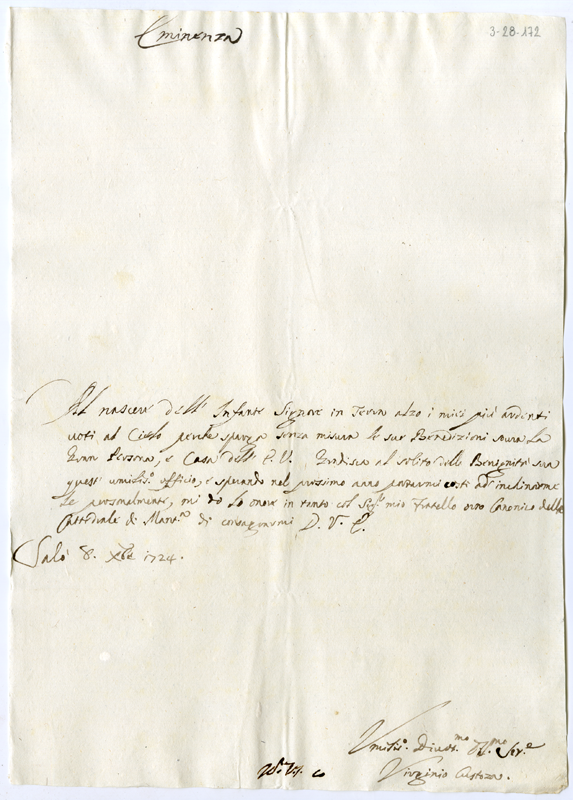 Eminenza
3-28-172
Al nascere dell' Infante Signore in Terra alzo i miei più ardenti
voti al Cielo perche sparga senza misura le sue Benedizioni sovra la
Persona, e Casa dell' E. V. Gradisca al solito della Benignità sua
quest' umiliss.o officio, e sperando nel prossimo anno portarmi ad inclinarme
le personalmente, mi dò lo onore in tanto col Sig.r mio Fratello Canonico della
Cattedrale di Mant.a di consagrarmi D. V. E.
Salò 8. Xbre 1724.
Umilis.o Divot.mo Ser.e
Virginio Custoza.